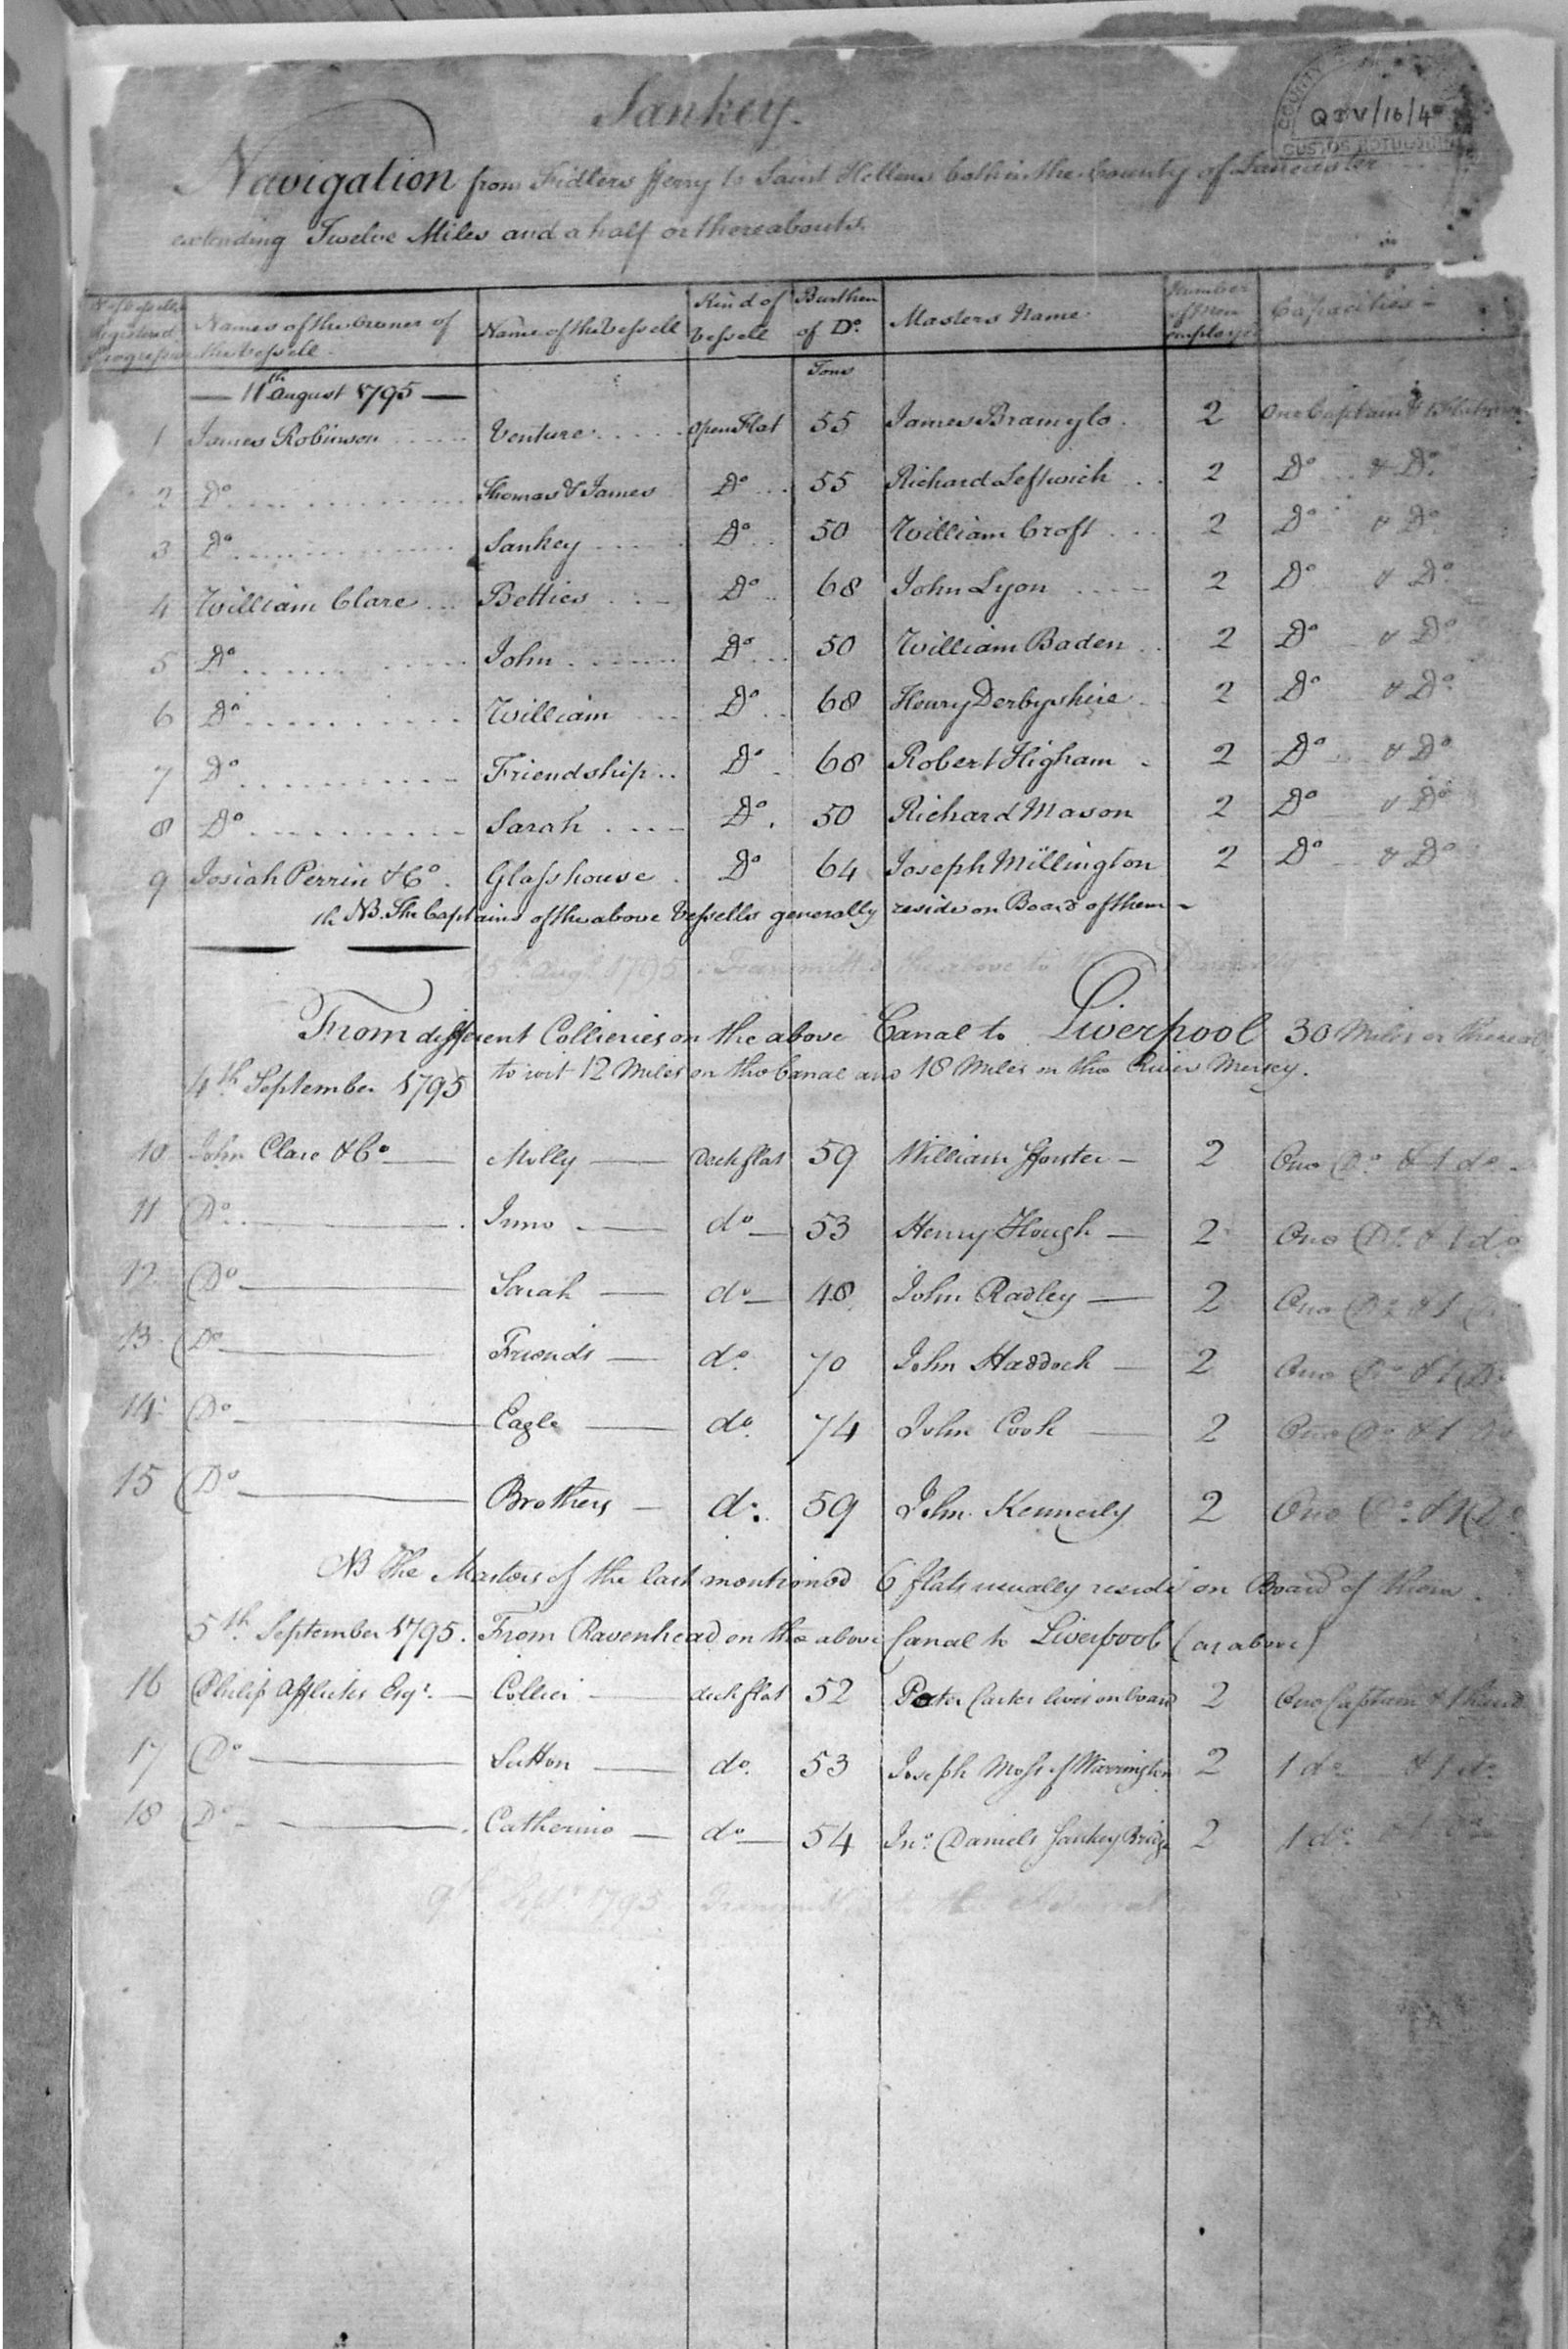 Sankey.
QDV/16/4
COUNTY
CUSTOS ROTULORUM
Navigation from Fidlers fferry to Saint Hellens both in the County of Lancaster
extending Twelve Miles and a half or thereabouts.
No of Vessells Registered Progressive | Names of the Owner of the Vessell | Name of the Vessell | Kind of Vessell | Burthen of Do. | Masters Name | Number of Men employed | Capacities
Tons
11th August 1795
1 James Robinson Venture Open Flat 55 James Bramylo 2 One Captain & 1 Flatman
2 Do Thomas & James Do 55 Richard Leftwich 2 Do & Do
3 Do Sankey Do 50 William Croft 2 Do & Do
4 William Clare Betties Do 68 John Lyon 2 Do & Do
5 Do John Do 50 William Baden 2 Do & Do
6 Do William Do 68 Henry Derbyshire 2 Do & Do
7 Do Friendship Do 68 Robert Higham 2 Do & Do
8 Do Sarah Do 50 Richard Mason 2 Do & Do
9 Josiah Perrin & Co. Glasshouse Do 64 Joseph Millington 2 Do & Do
NB. The Captains of the above Vessells generally reside on Board of them
Augt. 1795 Transmitted the above to the
From different Collieries on the above Canal to Liverpool 30 Miles or
4th September 1795 to wit 12 Miles on the Canal and 18 Miles on the River Mersey.
10 John Clare & Co Molly Deck flat 59 William fforster 2 One Do. & 1 do
11 Do. Juno do 53 Henry Hough 2 One Do. & 1 do
12 Do Sarah do 48 John Radley 2 One Do & 1
13 Do Friends do. 70 John Haddock 2 One Do & 1 Do
14 Do Eagle do. 74 John Cook 2 One Do & 1 Do
15 Do Brothers do. 59 John Kennerly 2 One Do. & 1 Do
NB The Masters of the last mentioned 6 flats usually reside on Board of them.
5th. September 1795. From Ravenhead on the above Canal to Liverpool (as above)
16 Philip Afflicks Esqr. Collier deck flat 52 Peter Carter lives on board 2 One Captain & 1 hand
17 Do Sutton do. 53 Joseph Moss of Warrington 2 1 do & 1 do
18 Do Catherine do 54 Jno. Daniels Sankey Bridge 2 1 do. & 1 Do
9th Sept. 1795 Transmitted to the Admiralty